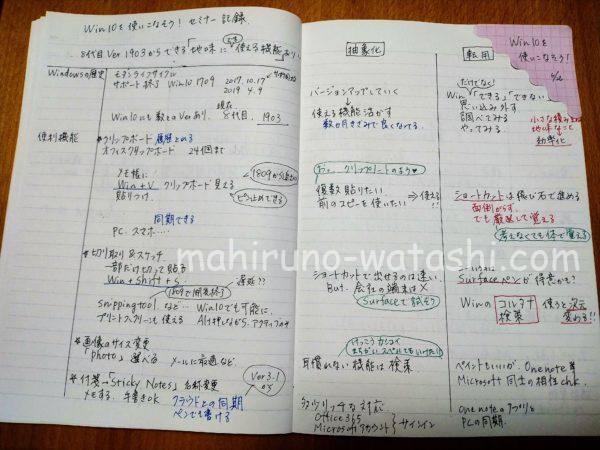 Win 10 を使いこなそう! セミナー 記録
8代目 Ver 1903 からできる「地味に使える機能」あり
Windowsの歴史
モダンライフサイクル
サポート終了 Win10 1709 2017.10.17
2019 4.9
現在
Win10にも数々Verあり、8代目、1903
便利機能
*クリップボード 履歴とれる
オフィスクリップボード 24個まで
メモ帳に!
1809から
Win + V クリップボード見える
貼りつけ
ピン止めできる
同期できる
PC スマホ…
*切り取り & スケッチ
一部だけ切って貼る
Win + Shift + S
遅延??
1809で開発終了
Snipping tool など… Win10でも可能に
プリントスクリーンも使える Alt押しながら、アクティブのみ
*画像のサイズ変更
「Photo」選べる メールに最適など
*付箋→「Sticky Notes」名称変更
Ver3.1
メモする、手書きOK
クラウド上の同期
ペンでも書ける
抽象化
バージョンアップしていく
↓
使える機能活かす
数ヵ月きざみで良くなってる
複数貼りたい
前のコピーを使いたい ⇒ 使える!!
ショートカットで出せるのは速い
But 会社の端末は×
Surfaceで試そう
けっこうカシコイ
見慣れない機能は検索
Office 365
Microsoft アカウント } サインイン
転用
Win10を使いこなそう!
だけでなく!
Win「できる」「できない」
思い込み外す
調べてみる
やってみる
小さな積み上げ
地味なこと
↓
効率化
ショートカットは飛び石で進める
面倒がらず
でも厳選して覚える
考えなくても体で覚える
Surfaceペンが得意かも?
Winの コルタナ検索 使うと次元変める!!
ペイントもいいが、Onenote 等
Microsoft 同士の相性chk.
onenoteのアプリと
PCの同期
mahiruno-watashi.com